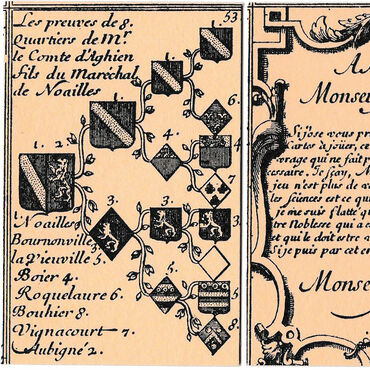 53
Les preuves de 8.
Quartiers de Mr.
le Comte d'Aghien
fils du Maréchal
de Noailles
1.
1.
6.
1.
4.
4.
7
1. 2.
3.
3.
3.
5.
5.
8.
Noailles
Bournonville
la Vieuville 5.
Boier 4.
Roquelaure 6.
Bouhier 8.
Vignacourt 7.
Aubigné 2.
A
Monse
Si j'ose vous pr
Cartes à joüer, ce
ouvrage qui ne fait p
cessaire. Je sçay, M
jeu n'est plus de v
les sciences est ce qu
je me suis flatté qu
tre Noblesse qui a
et qui le doit estre a
Si je puis par cet e
Monse